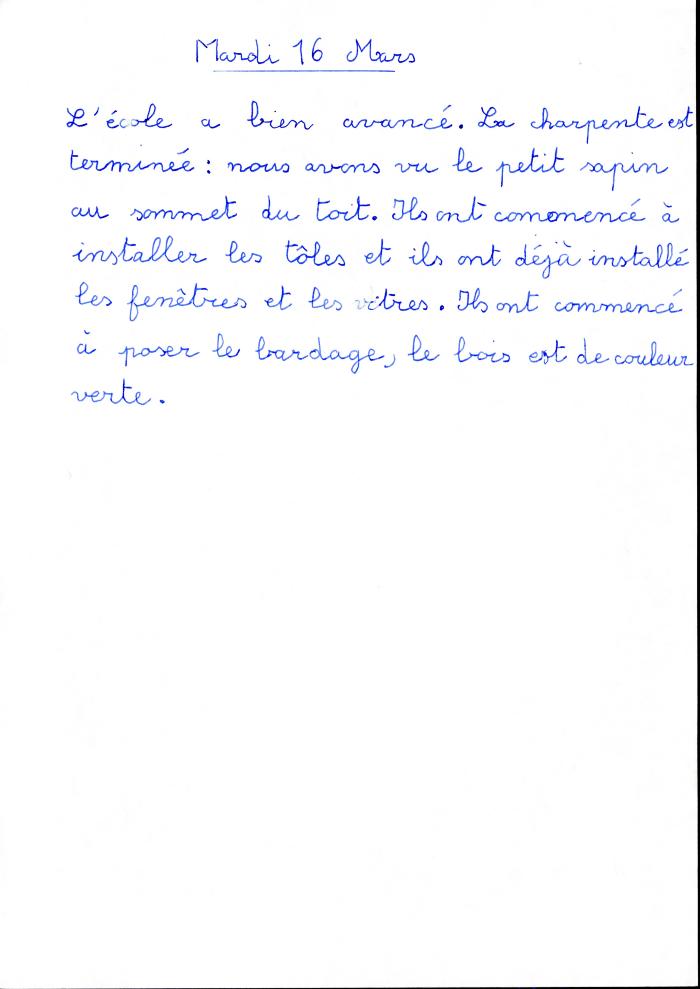 Mardi 16 Mars
L'école a bien avancé. La charpente est
terminée : nous avons vu le petit sapin
au sommet du toit. Ils ont comonencé à
installer les tôles et ils ont déjà installé
les fenêtres et les vitres. Ils ont commencé
à poser le bardage, le bois est de couleur
verte.